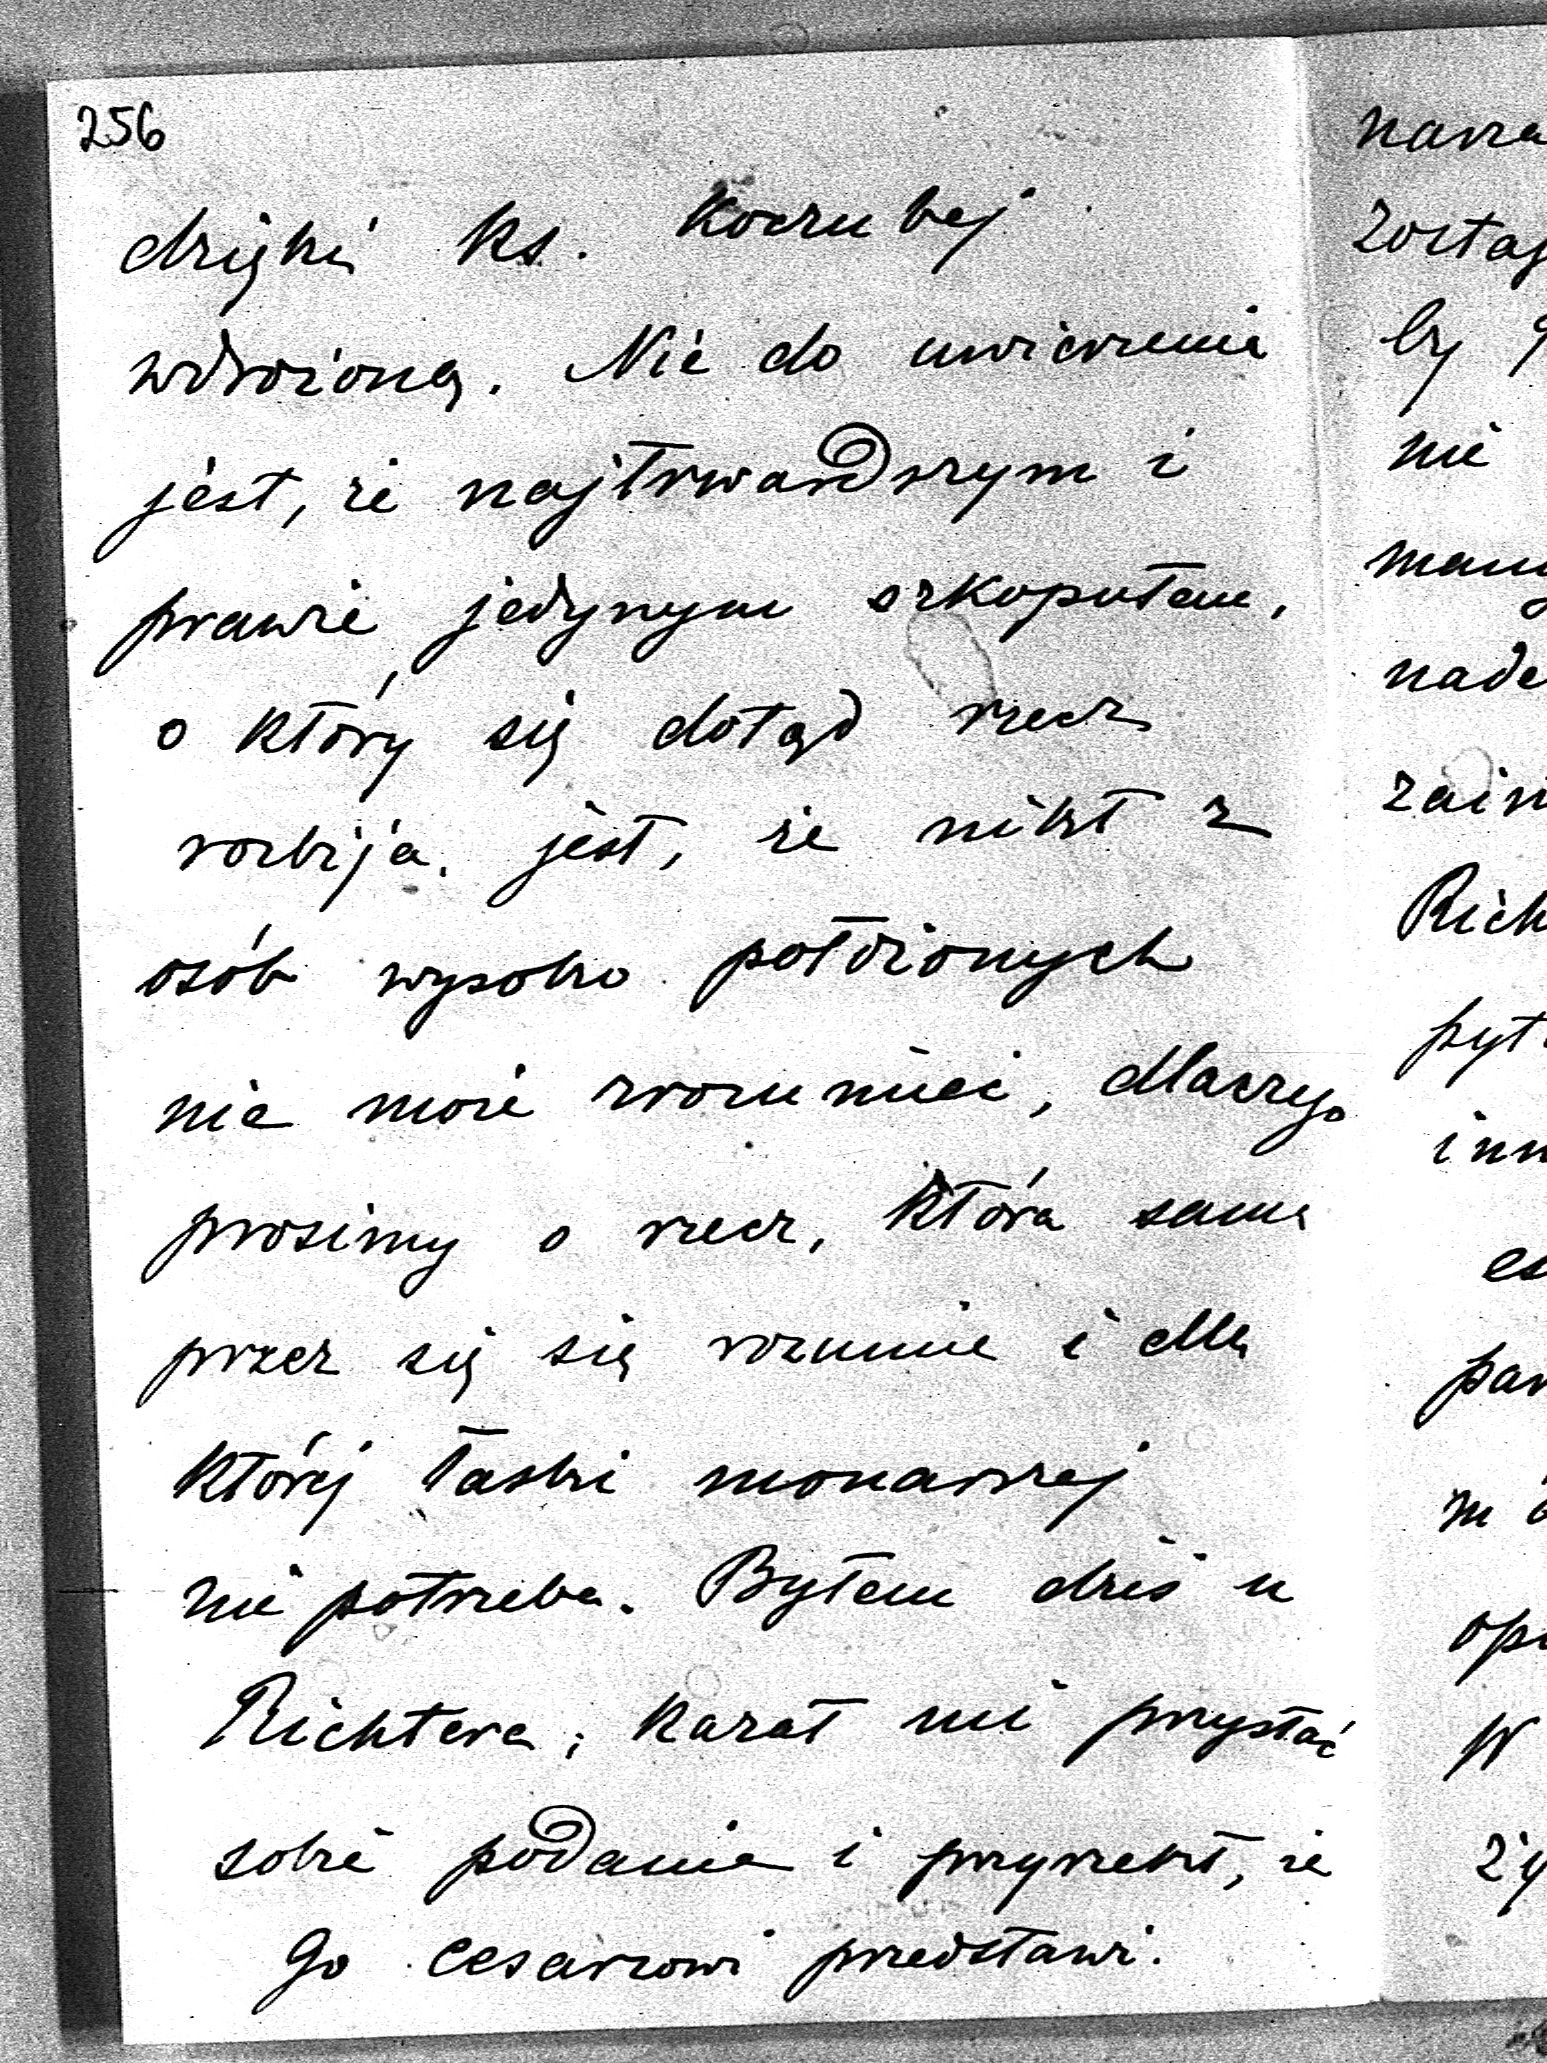 256
dzięki ks. Koczubej
wdrożoną. Nie do uwierzenia
jest, że najtrwardszym i
prawie jedynym szkopułem,
o który się dotąd rzecz
rozbija, jest, że nikt z
osób wysoko położonych
nie może zrozumieć, dlaczego
prosimy o rzecz, która sama
przez się się rozumie i dla
której łaski monarszej
nie potrzeba. Byłem dziś u
Richtera; kazał mi przysłać
sobie podanie i przyrzekł, że
go cesarzowi przedstawi.
nasza
zostaj
by
nie
mamy
nade
zain
Rich
pyt
inn
es
pan
opi
W
ży